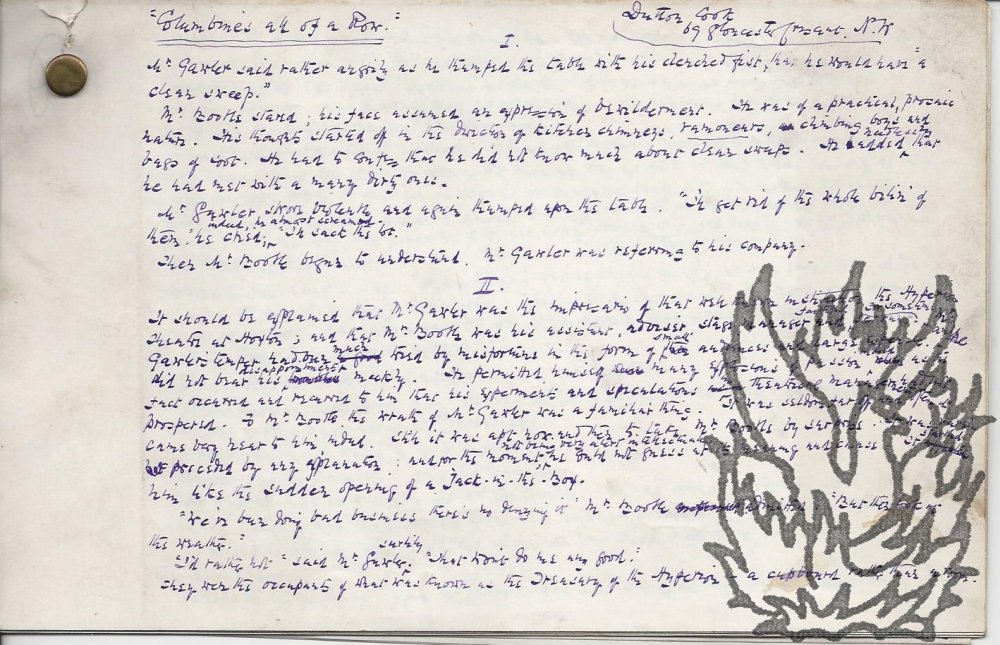 "Columbines all of a Row."
Dutton Cook
69 Gloucester Crescent. N.W
I.
Mr Gawler said rather angrily as he thumped the table with his clenched fist, that he would have "a
clean sweep."
Mr Bootle stared; his face assumed an expression of bewilderment. He was of a practical, prosaic
nature. His thoughts started off in the direction of kitchen chimneys, ramoneurs, climbing boys and
bags of soot. He had to confess that he did not know much about clean sweeps. He added that
he had met with a many dirty ones.
Mr Gawler swore violently and again thumped upon the table. "I'll get rid of the whole bilin' of
indeed, he almost screamed.
them" he cried; "I'll sack the lot."
Then Mr Bootle began to understand. Mr Gawler was referring to his company.
II.
It should be explained that Mr Gawler was the impresario of that well known the Hyperion
Theatre at Hoxton; and that Mr Bootle was his assistant, adviser, stage manager and
Gawler's temper had been much tried by misfortune in the form of small audiences and large
disappointments
did not bear his meekly. He permitted himself many expressions
fact occurred and recurred to him that his experiments and speculations theatrical
prospered. To Mr Bootle the wrath of Mr Gawler was a familiar thing. It was seldom far off and often
came very near to him indeed. Still it was apt now and then to take Mr Bootle by surprise.
not being very alert intellectually
preceded by any explanation: and for the moment he could not guess at its meaning and cause
him like the sudden opening of a Jack-in-the-Box.
"We've been doing bad business there's no denying it" Mr Bootle admitted "But then look at
the weather."
"I'd rather not" said Mr Gawler surlily. "That won't do me any good."
They were the occupants of what was known as the Treasury of the Hyperion - a cupboard rather than a room.